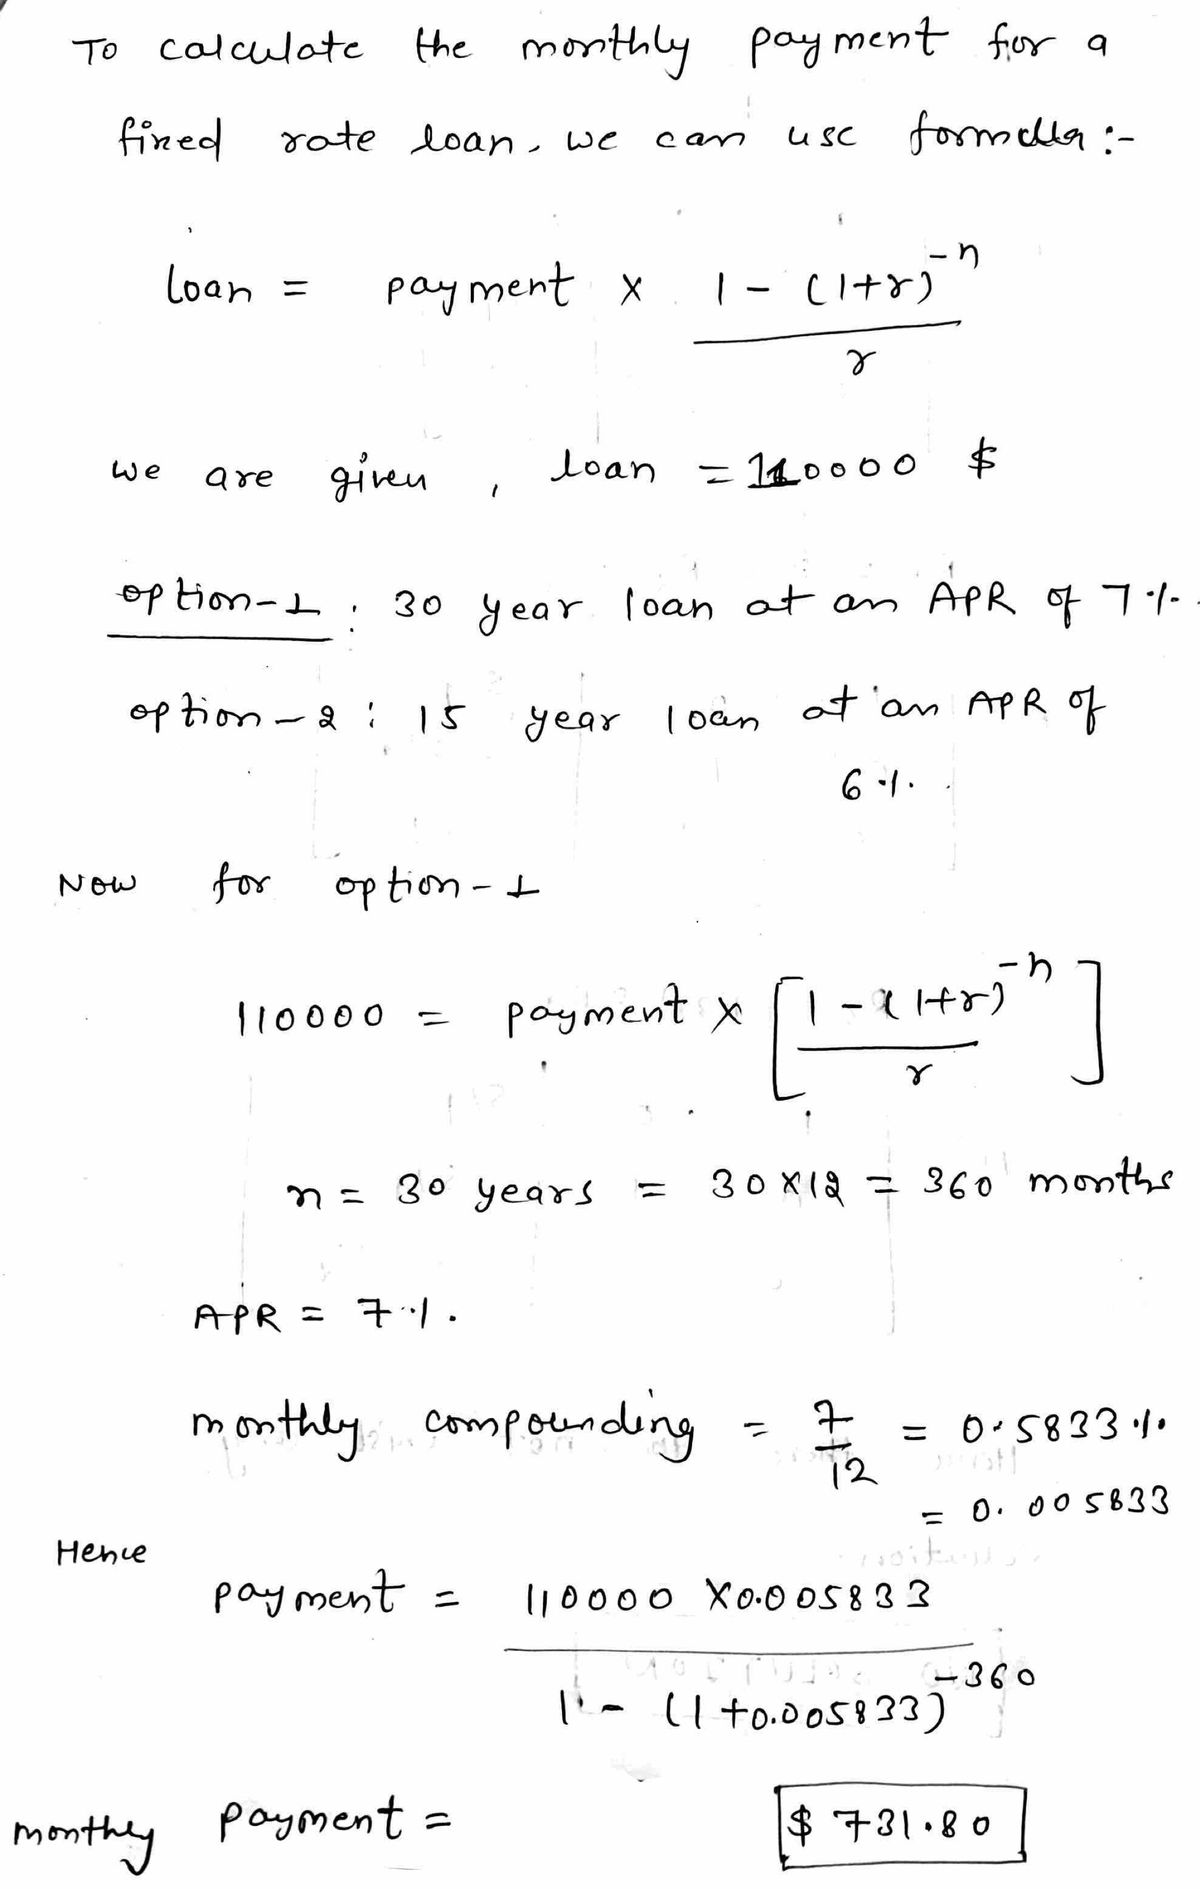 To calculate the monthly payment for a
fixed rate loan, we can use formula :-
loan = payment × 1 - (1+r)^-n
r
we are given, loan = 110000 $
option-1 : 30 year loan at an APR of 7%.
option-2 : 15 year loan at an APR of
6%.
Now for option-1
110000 = payment × [1 - (1+r)^-n]
r
n = 30 years = 30×12 = 360 months
APR = 7%.
monthly compounding = 7/12 = 0.5833%.
= 0.005833
Hence
payment = 110000 ×0.005833
1 - (1+0.005833)^-360
monthly payment = $ 731.80